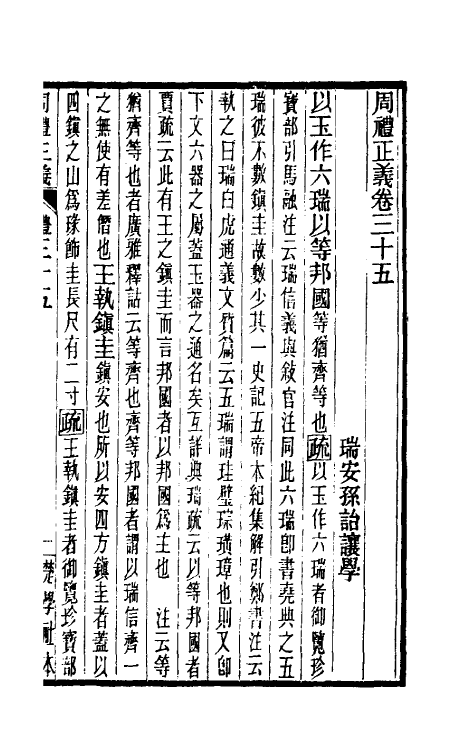 周禮正義卷三十五
瑞安孫詒讓學
以玉作六瑞以等邦國等猶齊等也疏以玉作六瑞者御覽珍
寶部引馬融注云瑞信義與敍官注同此六瑞卽書堯典之五
瑞彼不數鎭圭故數少其一史記五帝本紀集解引鄭書注云
執之曰瑞白虎通義文質篇云五瑞謂珪璧琮璜璋也則又卽
下文六器之屬蓋玉器之通名矣互詳典瑞疏云以等邦國者
賈疏云此有王之鎭圭而言邦國者以邦國爲主也　注云等
猶齊等也者廣雅釋詁云等齊也齊等邦國者謂以瑞信齊一
之無使有差僭也王執鎭圭鎭安也所以安四方鎭圭者蓋以
四鎭之山爲瑑飾圭長尺有二寸疏王執鎭圭者御覽珍寶部
周禮正義　禮三十五　一　楚學社本